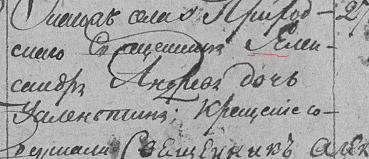 села Природ- 2
скаго Священникъ Алек-
сандръ Андреевъ дочь
Валентина; Крещеніе со-
вершали Священникъ Алек